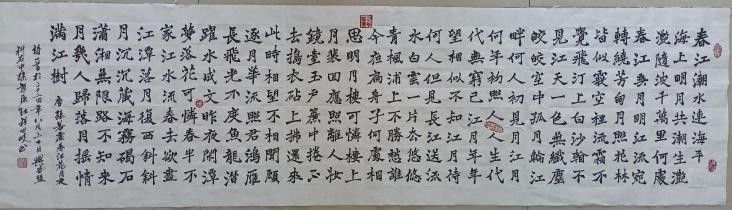 春江潮水連海平
海上明月共潮生灔
灔隨波千萬里何處
春江無月明江流宛
轉繞芳甸月照花林
皆似霰空裡流霜不
覺飛汀上白沙看不
見江天一色無纖塵
皎皎空中孤月輪江
畔何人初見月江月
何年初照人人生代
代無窮已江月年年
望相似不知江月待
何人但見長江送流
水白雲一片去悠悠
青楓浦上不勝愁誰
今夜扁舟子何處相
思明月樓可憐樓上
月裴回應照離人妝
鏡臺玉戶簾中捲不
去搗衣砧上拂還來
此時相望不相聞願
逐月華流照君鴻雁
長飛光不度魚龍潛
躍水成文昨夜閒潭
夢落花可憐春半不
家江水流春去欲盡
江潭落月復西斜斜
月沉沉藏海霧碣石
瀟湘無限路不知乘
月幾人歸落月搖情
滿江樹
唐張若虛春江花月夜